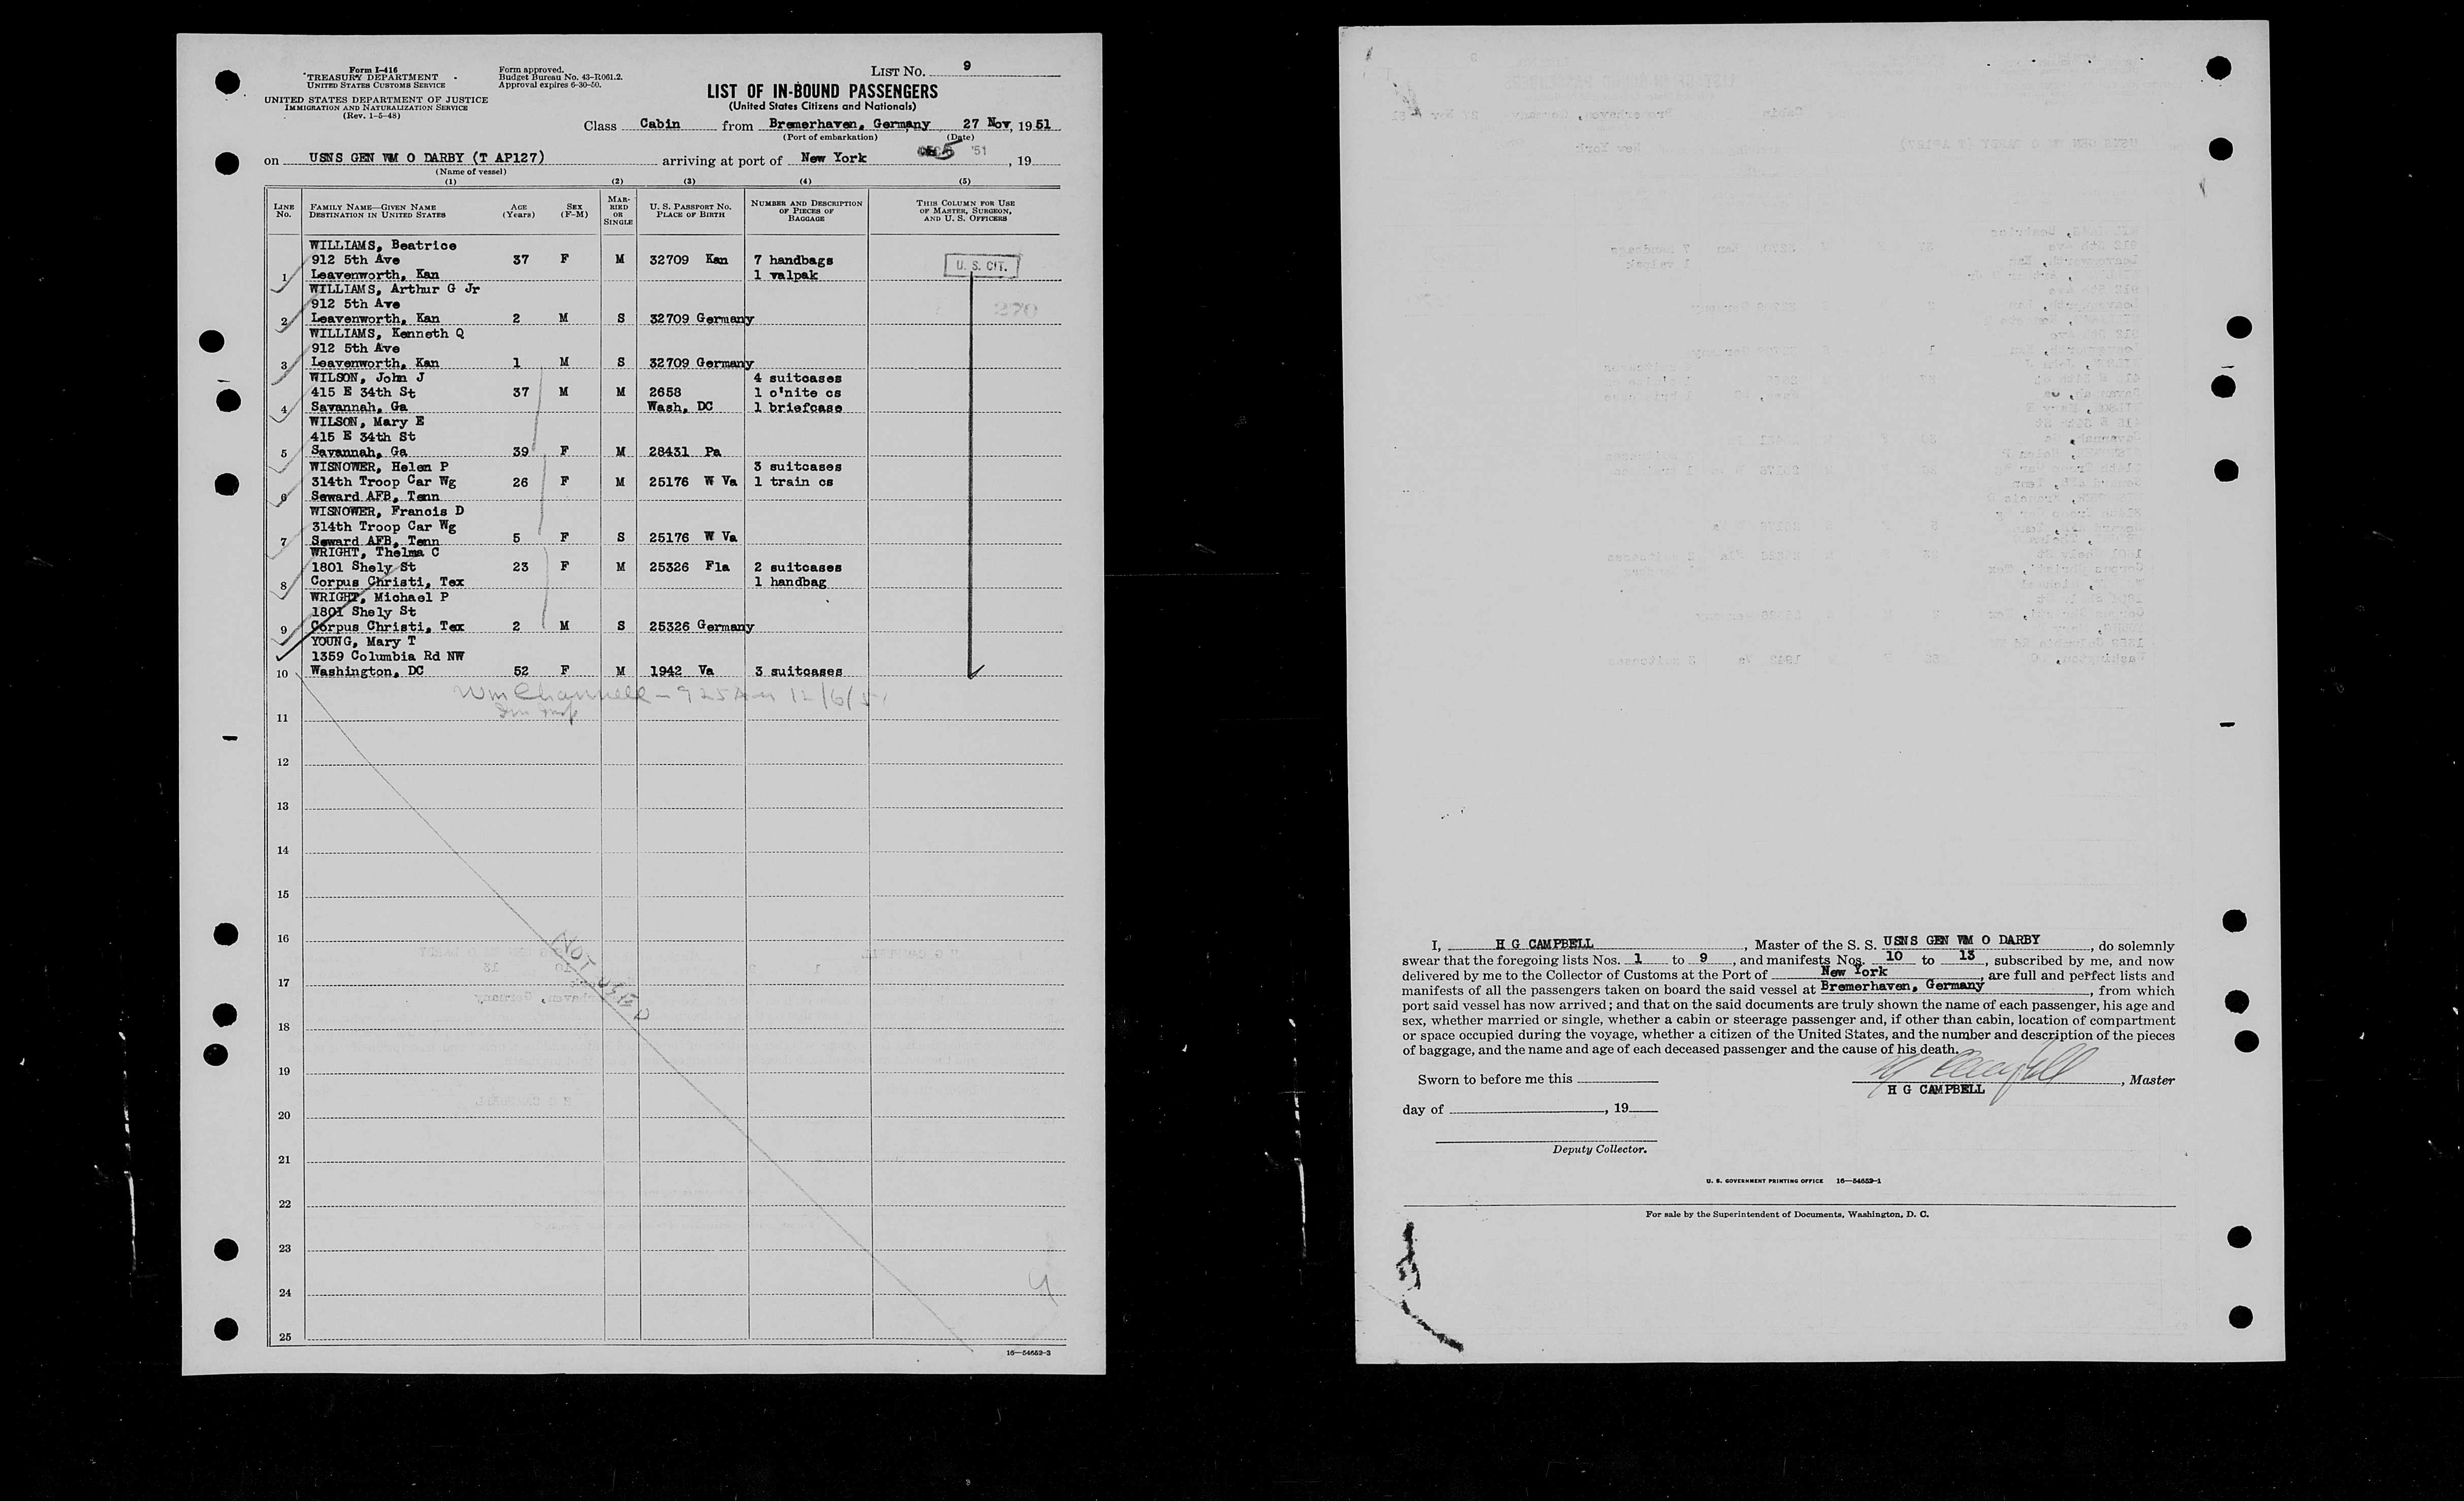 Form I-416
TREASURY DEPARTMENT
UNITED STATES CUSTOMS SERVICE
UNITED STATES DEPARTMENT OF JUSTICE
IMMIGRATION AND NATURALIZATION SERVICE
(Rev. 1-5-48)
Form approved.
Budget Bureau No. 43-R061.2.
Approval expires 6-30-50.
LIST NO. 9
LIST OF IN-BOUND PASSENGERS
(United States Citizens and Nationals)
Class Cabin from Bremerhaven, Germany 27 Nov, 1951
(Port of embarkation) (Date)
on USNS GEN WM O DARBY (T AP127) arriving at port of New York 5 '51, 19
(Name of vessel)
(1) (2) (3) (4) (5)
LINE NO. FAMILY NAME—GIVEN NAME DESTINATION IN UNITED STATES AGE (Years) SEX (F-M) MARRIED OR SINGLE U. S. PASSPORT NO. PLACE OF BIRTH NUMBER AND DESCRIPTION OF PIECES OF BAGGAGE THIS COLUMN FOR USE OF MASTER, SURGEON, AND U. S. OFFICERS
WILLIAMS, Beatrice
912 5th Ave 37 F M 32709 Kan 7 handbags U. S. CIT.
1 Leavenworth, Kan 1 valpak
WILLIAMS, Arthur G Jr
912 5th Ave 270
2 Leavenworth, Kan 2 M S 32709 Germany
WILLIAMS, Kenneth Q
912 5th Ave
3 Leavenworth, Kan 1 M S 32709 Germany
WILSON, John J 4 suitcases
415 E 34th St 37 M M 2658 1 o'nite cs
4 Savannah, Ga Wash, DC 1 briefcase
WILSON, Mary E
415 E 34th St
5 Savannah, Ga 39 F M 28431 Pa
WISNOWER, Helen P 3 suitcases
314th Troop Car Wg 26 F M 25176 W Va 1 train cs
6 Seward AFB, Tenn
WISNOWER, Francis D
314th Troop Car Wg
7 Seward AFB, Tenn 5 F S 25176 W Va
WRIGHT, Thelma C
1801 Shely St 23 F M 25326 Fla 2 suitcases
8 Corpus Christi, Tex 1 handbag
WRIGHT, Michael P
1801 Shely St
9 Corpus Christi, Tex 2 M S 25326 Germany
YOUNG, Mary T
1359 Columbia Rd NW
10 Washington, DC 52 F M 1942 Va 3 suitcases
Wm Channell - 925 Am 12/6/51
11
12
13
14
15
16
NOT USED
17
18
19
20
21
22
23
24
25
16—54652-3
I, H G CAMPBELL, Master of the S. S. USNS GEN WM O DARBY, do solemnly
swear that the foregoing lists Nos. 1 to 9, and manifests Nos. 10 to 13, subscribed by me, and now
delivered by me to the Collector of Customs at the Port of New York, are full and perfect lists and
manifests of all the passengers taken on board the said vessel at Bremerhaven, Germany, from which
port said vessel has now arrived; and that on the said documents are truly shown the name of each passenger, his age and
sex, whether married or single, whether a cabin or steerage passenger and, if other than cabin, location of compartment
or space occupied during the voyage, whether a citizen of the United States, and the number and description of the pieces
of baggage, and the name and age of each deceased passenger and the cause of his death.
Sworn to before me this H G Campbell, Master
H G CAMPBELL
day of , 19
Deputy Collector.
U. S. GOVERNMENT PRINTING OFFICE 16—54652-1
For sale by the Superintendent of Documents, Washington, D. C.